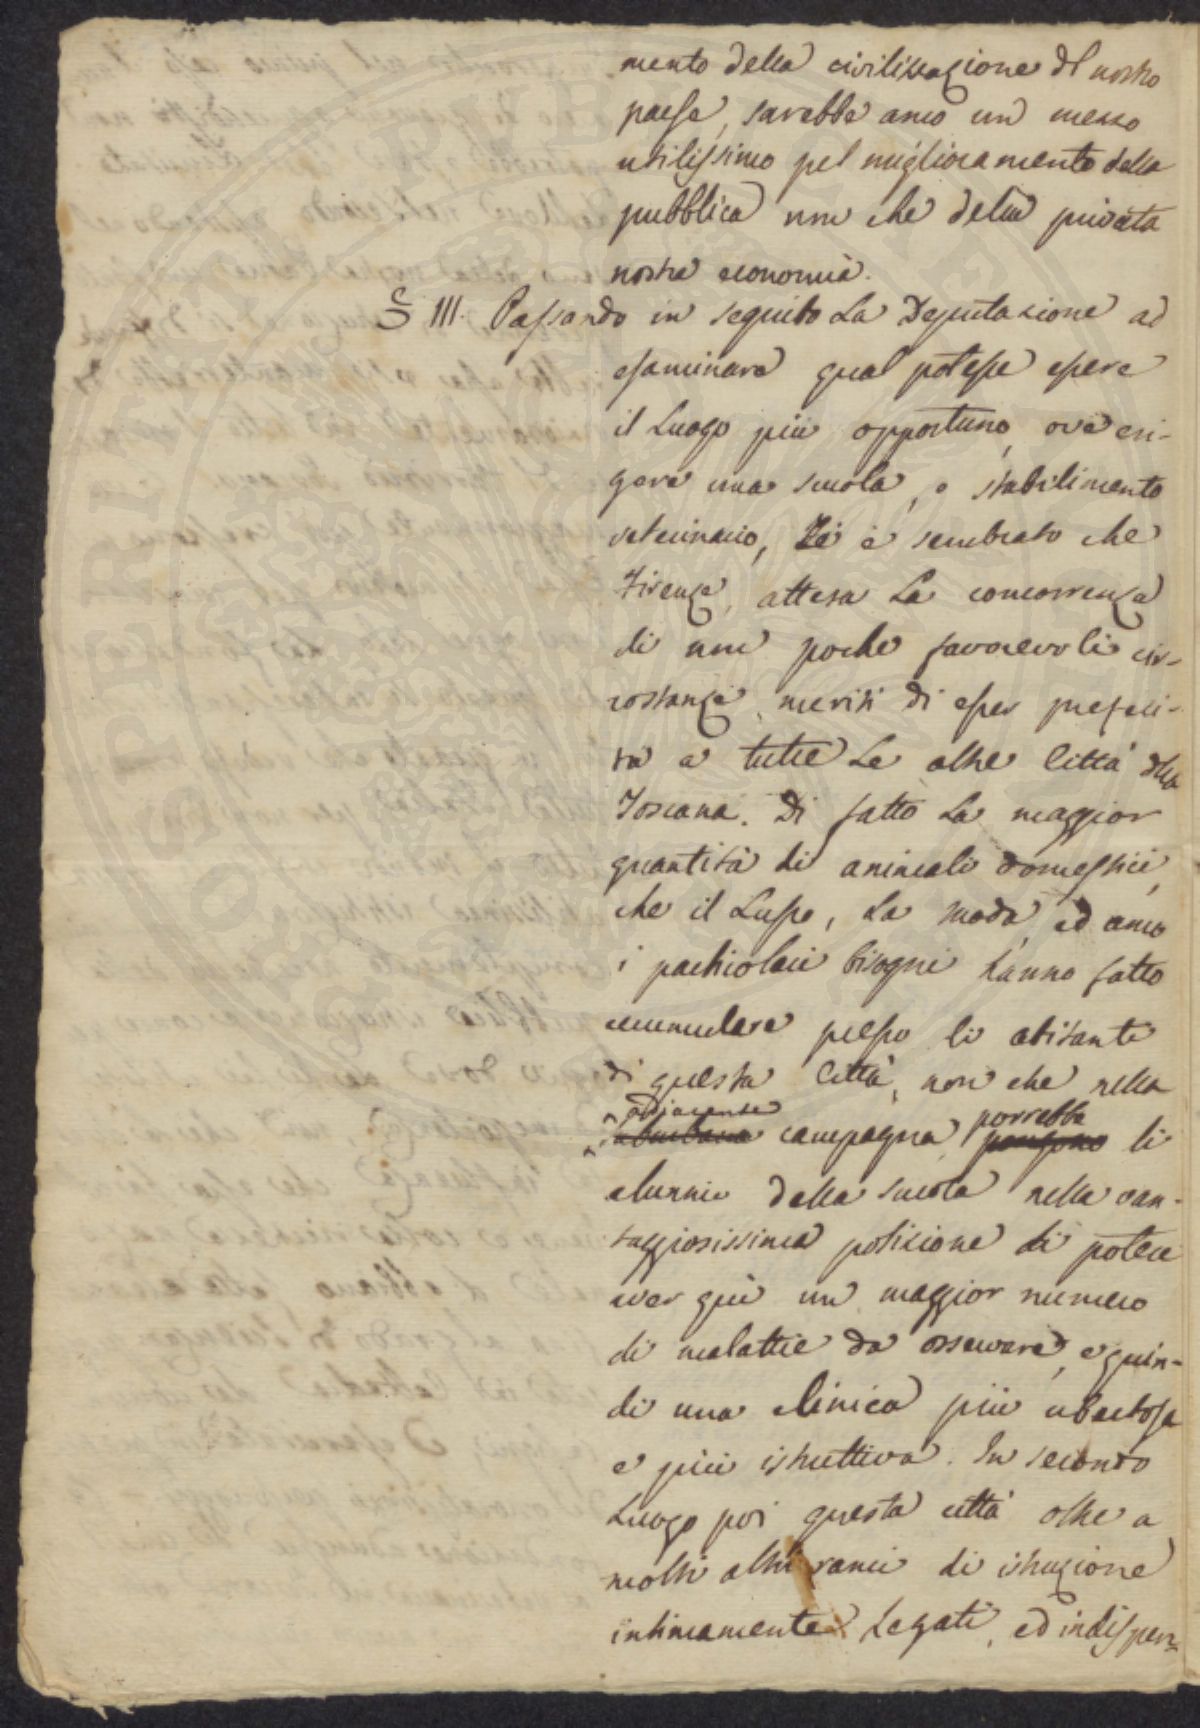 mento della civilizzazione del nostro
paese, sarebbe anco un mezzo
utilissimo pel miglioramento della
pubblica non che della privata
nostra economia.
§ III. Passando in seguito La Deputazione ad
esaminare qual potesse essere
il Luogo più opportuno, ove eri-
gere una scuola, o stabilimento
veterinario, Le è sembrato che
Firenze, attesa La concorrenza
di non poche favorevoli cir-
costanze, meriti di esser preferi-
ta a tutte Le altre Città della
Toscana. Di fatto La maggior
quantità di animali domestici,
che il Lusso, La moda, ed anco
i particolari bisogni hanno fatto
cumulare presso li abitanti
di questa Città, non che nella
adiacente porrebbe
suburbana campagna, pongono li
alunni della scuola nella van-
taggiosissima posizione di potere
aver quì un maggior numero
di malattie da osservare, e quin-
di una clinica più ubertosa
e più istruttiva. In secondo
Luogo poi questa città oltre a
molti altri rami di istruzione
intimamente Legati, ed indispen-
OSPERITATI PVBLICAE AV